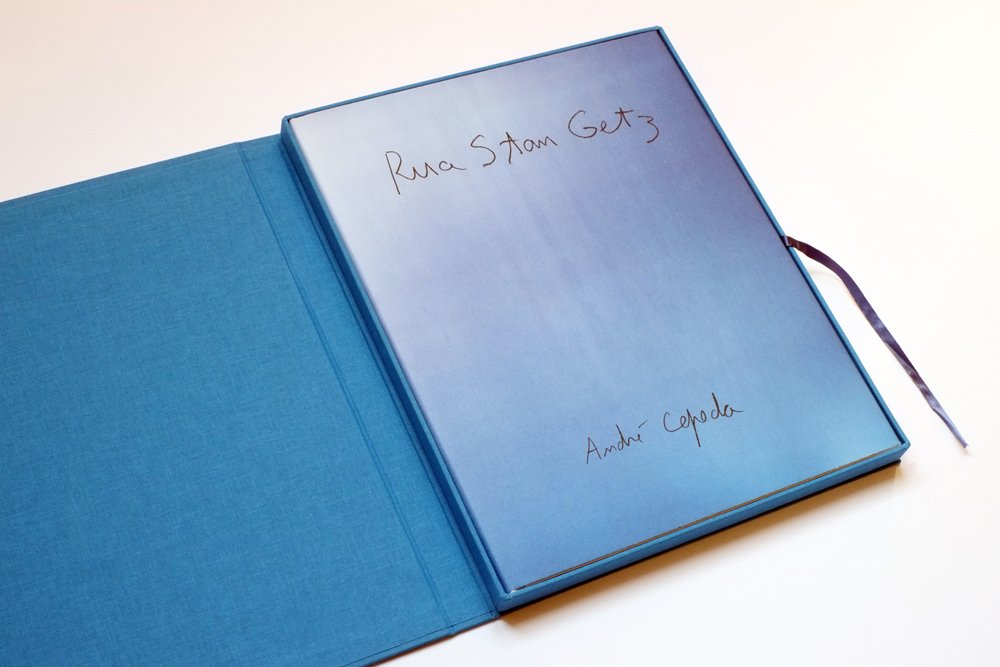 Rua Stan Getz
André Cepeda